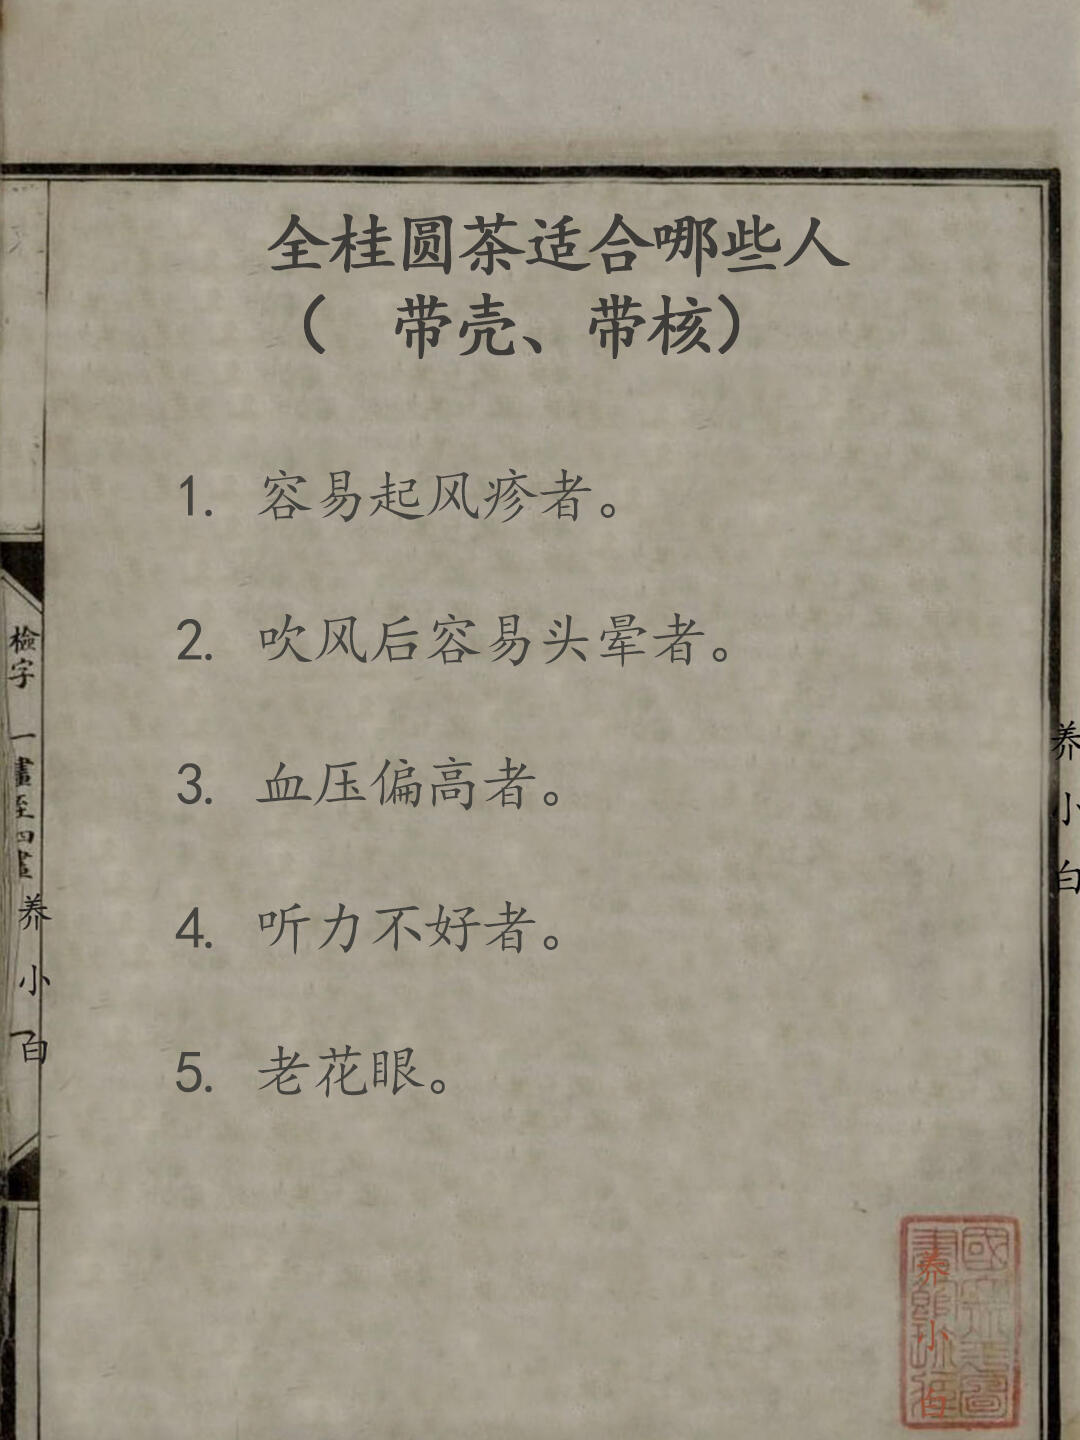 全桂圆茶适合哪些人
（ 带壳、带核）
1. 容易起风疹者。
2. 吹风后容易头晕者。
3. 血压偏高者。
4. 听力不好者。
5. 老花眼。
檢字 一畫至四畫
养小白
养小白
养小白